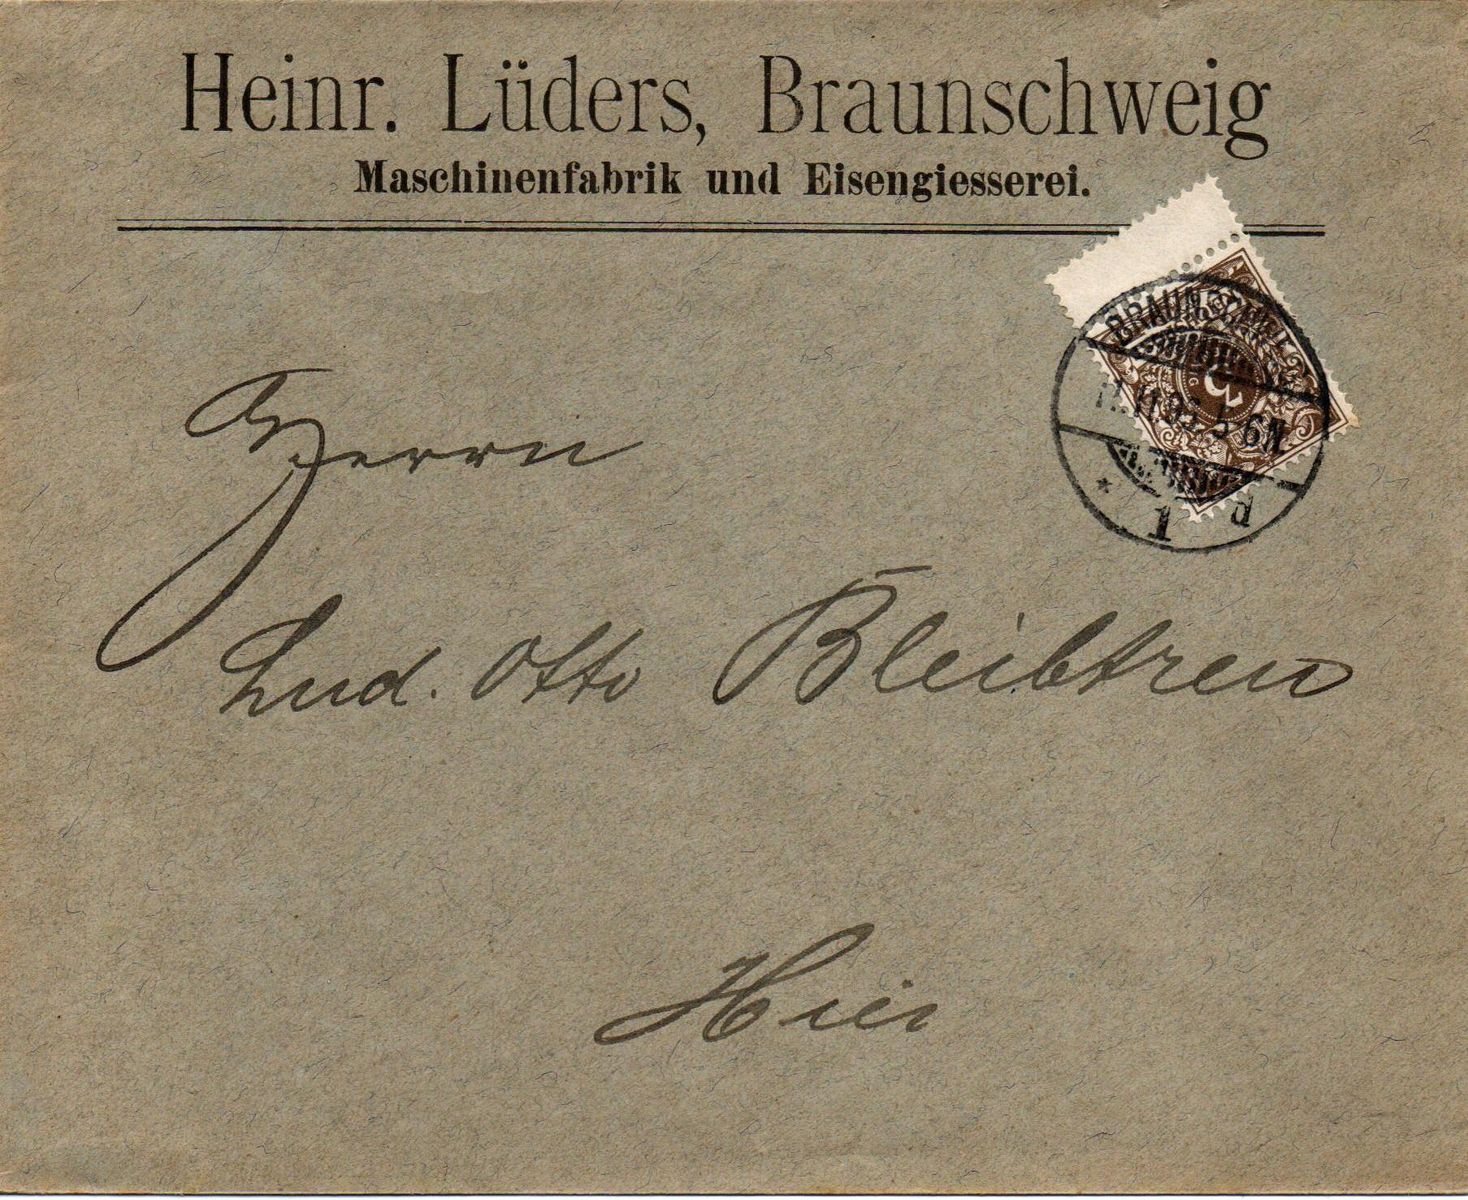 Heinr. Lüders, Braunschweig
Maschinenfabrik und Eisengiesserei.
BRAUNSCHWEIG
5-6N
* 1 d
3
Herrn
Lud. Otto Bleibtreu
Hier